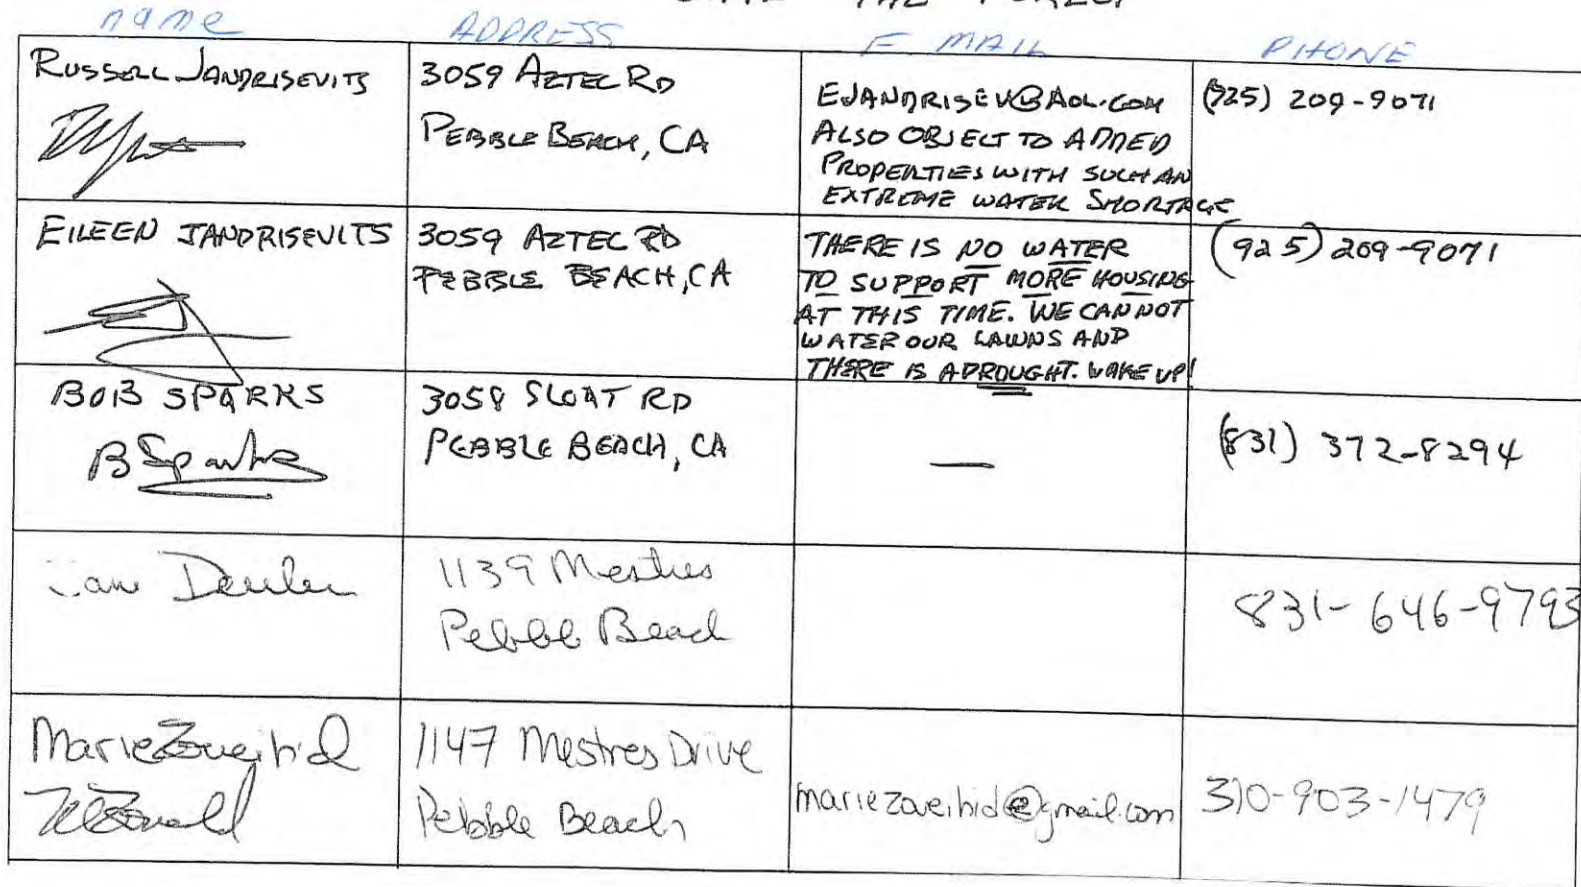 THE FOREST
name ADDRESS E MAIL PHONE
RUSSELL JANDRISEVITS
3059 AZTEC RD
PEBBLE BEACH, CA
EJANDRISEV@AOL.COM
ALSO OBJECT TO ADDED
PROPERTIES WITH SUCH AN
EXTREME WATER SHORTAGE
(925) 209-9071
EILEEN JANDRISEVITS
3059 AZTEC RD
PEBBLE BEACH, CA
THERE IS NO WATER
TO SUPPORT MORE HOUSING
AT THIS TIME. WE CANNOT
WATER OUR LAWNS AND
THERE IS A DROUGHT. WAKE UP!
(925) 209-9071
BOB SPARKS
B Sparks
3058 SLOAT RD
PEBBLE BEACH, CA
—
(831) 372-8294
1139 Mestres
Pebble Beach
831-646-9793
Marie Zoveihid
1147 Mestres Drive
Pebble Beach
mariezoveihid@gmail.com
310-903-1479